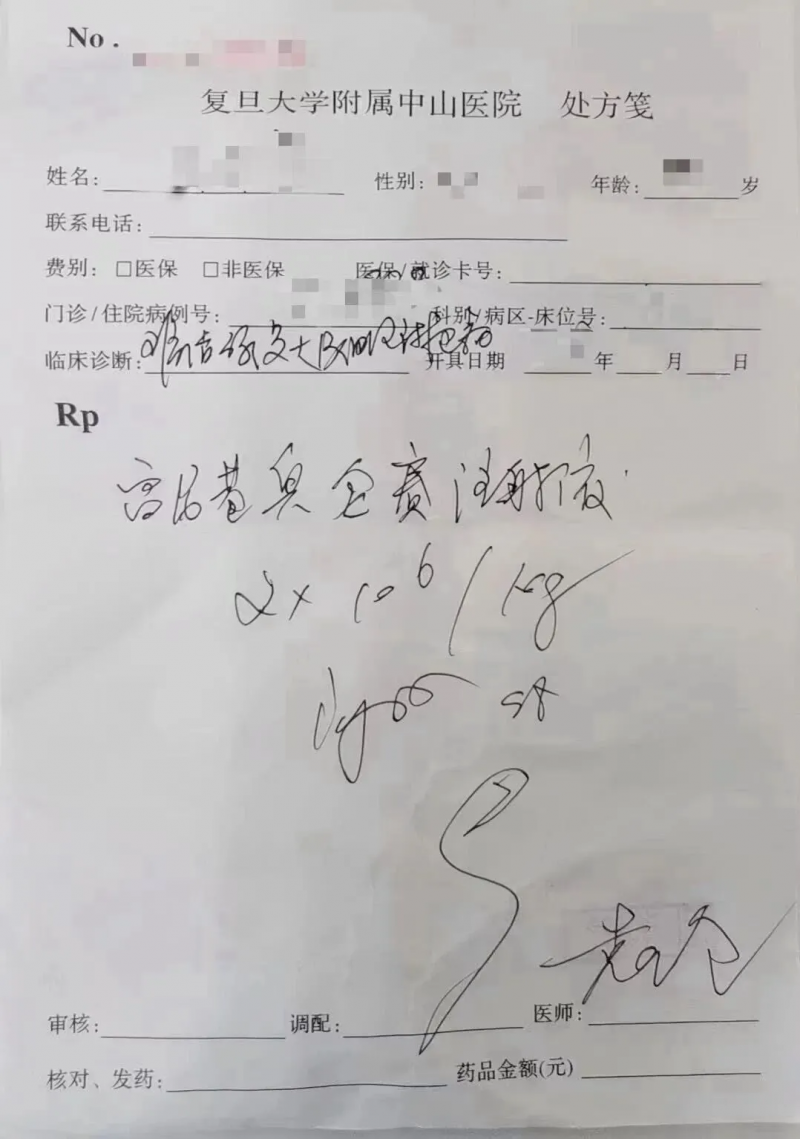 No.
复旦大学附属中山医院 处方笺
姓名: 性别: 年龄: 岁
联系电话:
费别: □医保 □非医保 医保/就诊卡号:
门诊/住院病例号: 科别/病区-床位号:
临床诊断: 大B细胞淋巴瘤 开具日期 年 月 日
Rp
仑赛注射液
2×10⁶/kg
审核: 调配: 医师:
核对、发药: 药品金额(元)